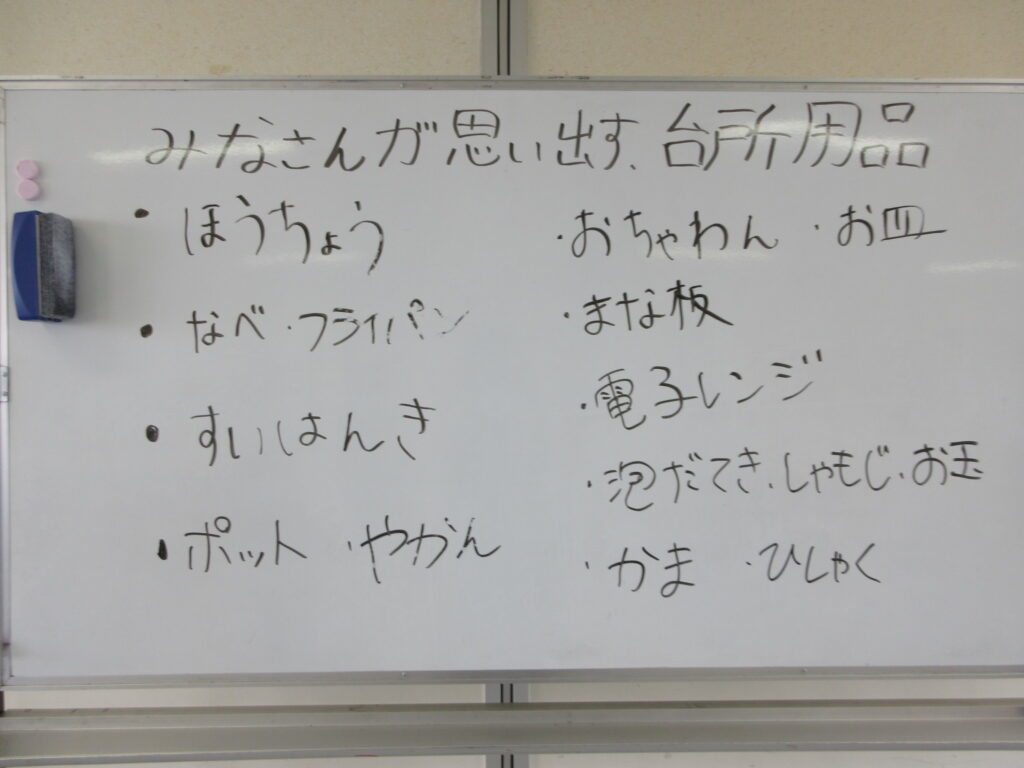 みなさんが思い出す、台所用品
・ほうちょう
・なべ・フライパン
・すいはんき
・ポット ・やかん
・おちゃわん ・お皿
・まな板
・電子レンジ
・泡だてき、しゃもじ、お玉
・かま ・ひしゃく